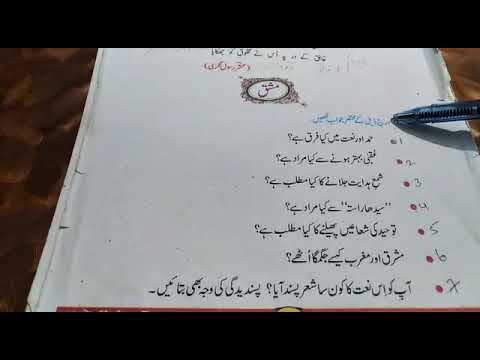 خالق کے در پہ اُس نے مخلوق کو جھکایا
مشق
درج ذیل کے مختصر جواب لکھیں۔
1 حمد اور نعت میں کیا فرق ہے؟
2 عقبیٰ بہتر ہونے سے کیا مراد ہے؟
3 شمعِ ہدایت جلانے کا کیا مطلب ہے؟
4 ”سیدھا راستہ“ سے کیا مراد ہے؟
5 توحید کی شعاعیں پھیلنے کا کیا مطلب ہے؟
6 مشرق اور مغرب کیسے جگمگا اُٹھے؟
7 آپ کو اس نعت کا کون سا شعر پسند آیا؟ پسندیدگی کی وجہ بھی بتائیں۔